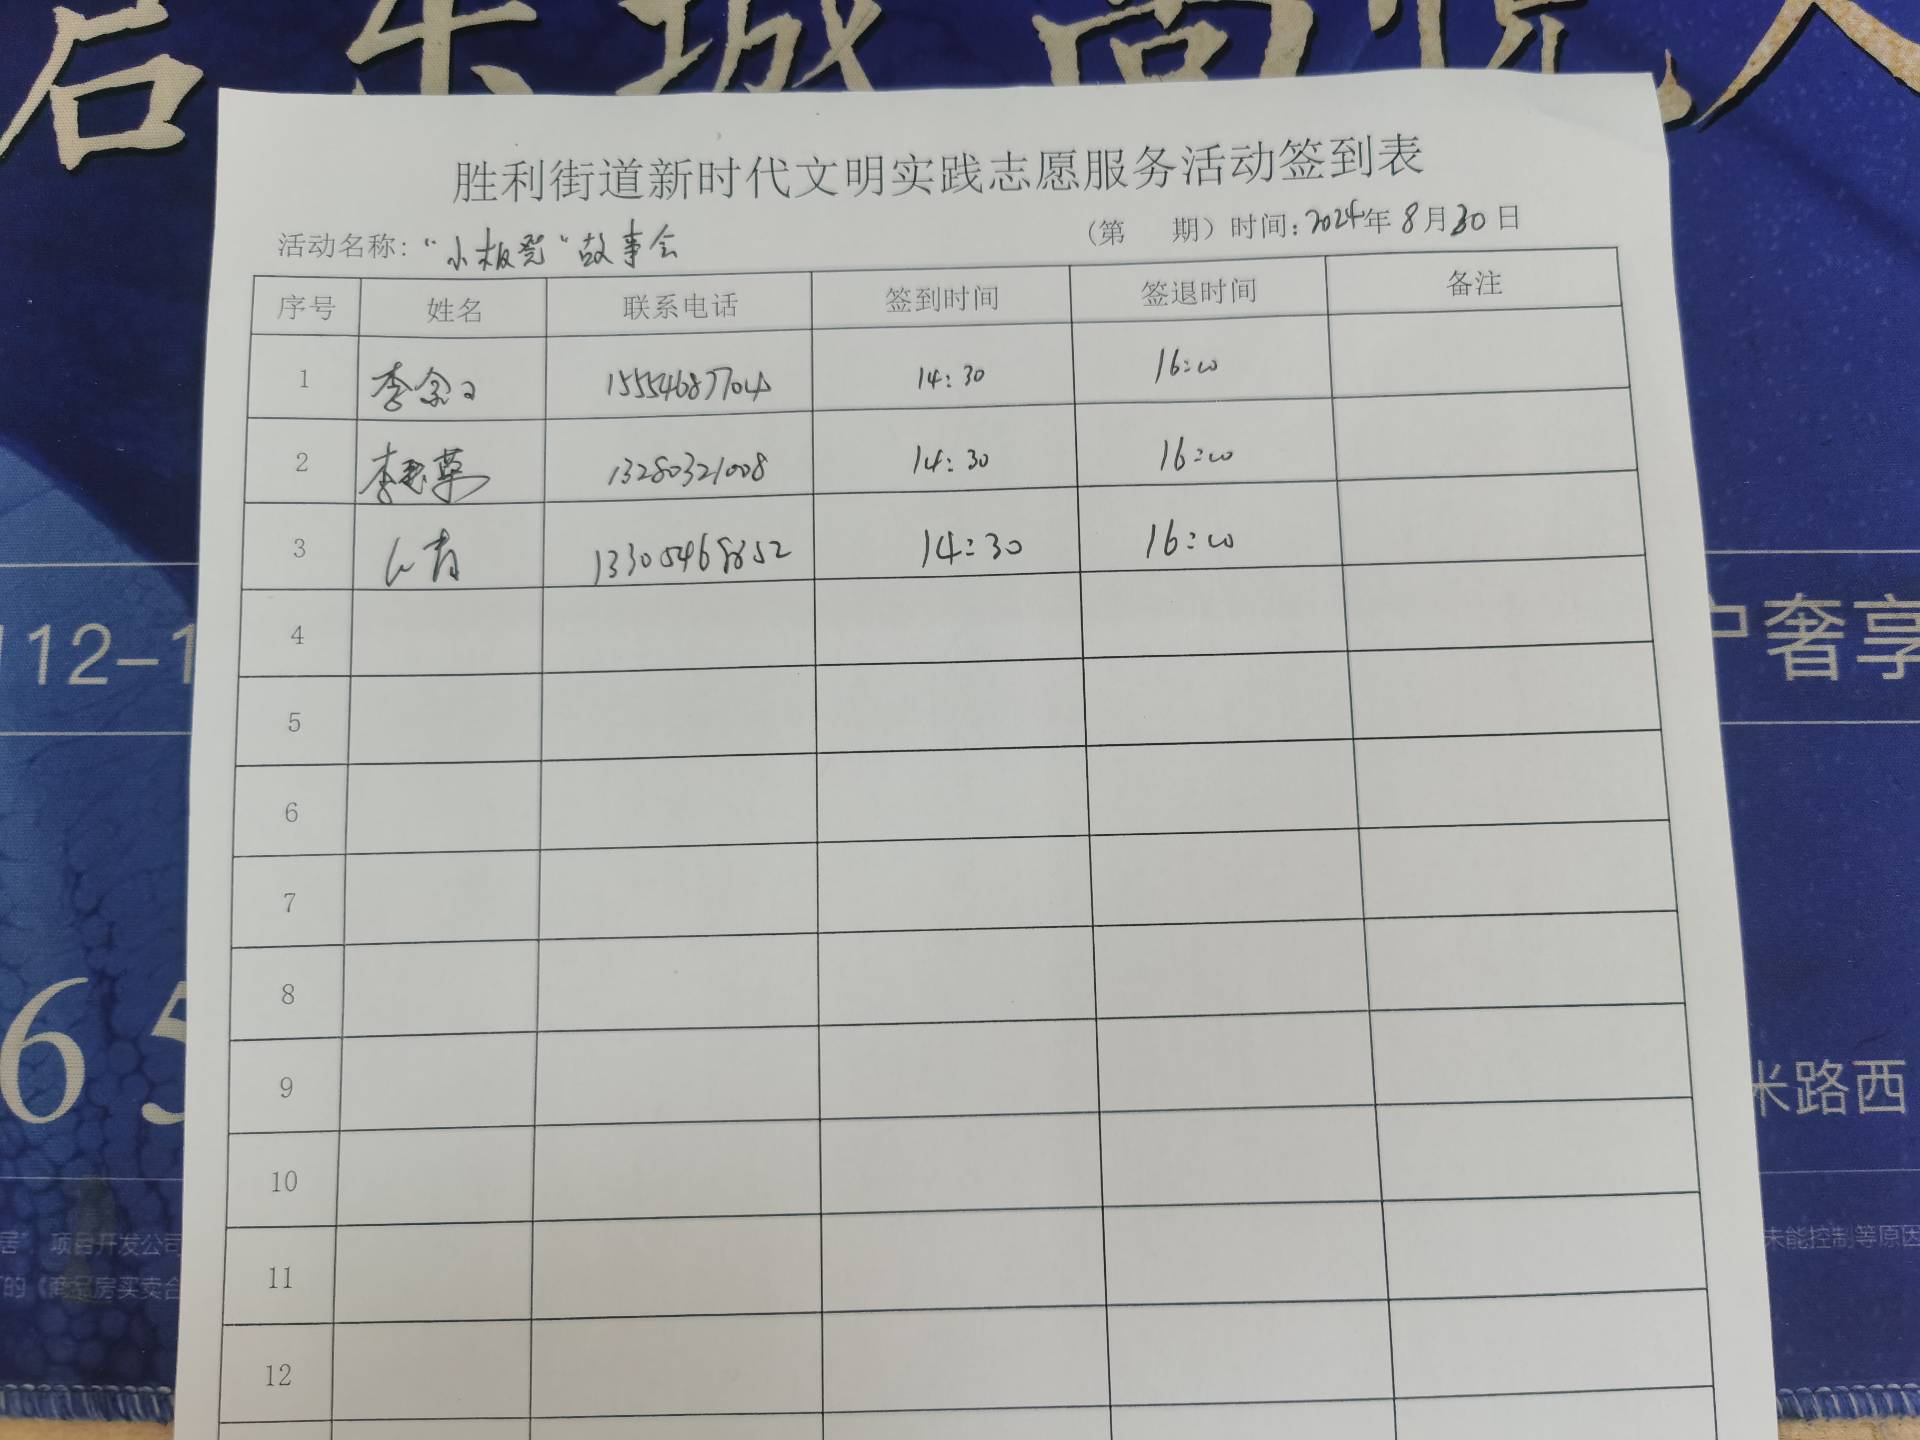 居乐城 尚悦人
胜利街道新时代文明实践志愿服务活动签到表
活动名称：“小板凳”故事会 （第 期）时间：2024年8月30日
序号 姓名 联系电话 签到时间 签退时间 备注
1 李 15554687704 14:30 16:00
2 李 13280321008 14:30 16:00
3 13305468852 14:30 16:00
4
112-1
户奢享
5
6
7
8
65
9
米路西
10
居”，项目开发公司
未能控制等原因
11
的《商品房买卖合
12